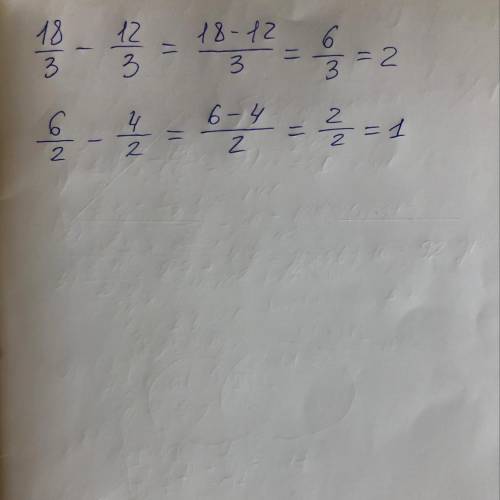 18/3 - 12/3 = 18-12/3 = 6/3 = 2
6/2 - 4/2 = 6-4/2 = 2/2 = 1